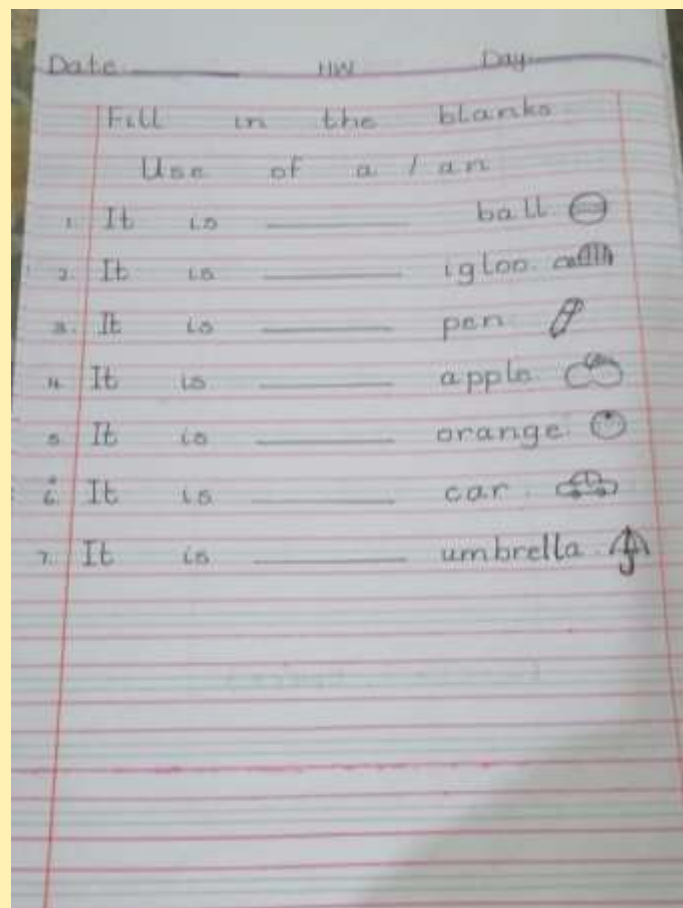 Date HW Day
Fill in the blanks.
Use of a / an
1. It is ______ ball.
2. It is ______ igloo.
3. It is ______ pen.
4. It is ______ apple.
5. It is ______ orange.
6. It is ______ car.
7. It is ______ umbrella.